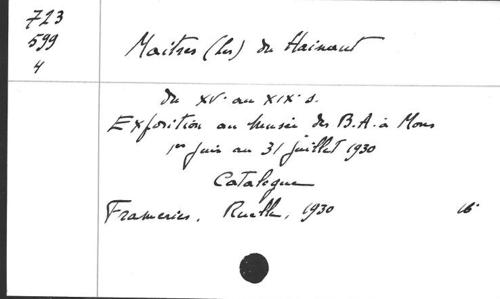 723
599
4
Maitres (Les) du Hainaut
du XVe au XIXe s.
Exposition au Musée des B.A. à Mons
1er juin au 31 juillet 1930
Catalogue
Frameries, Ruelle, 1930